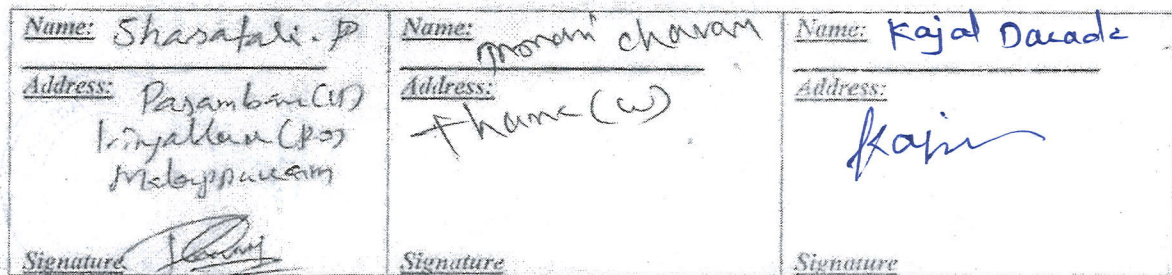 Name: Sharafali. P
Address: Parambare (H)
Iringallur (po)
Malappuram
Signature
Name: monani chavan
Address:
Thane (w)
Signature
Name: Kajal Darade
Address:
Signature